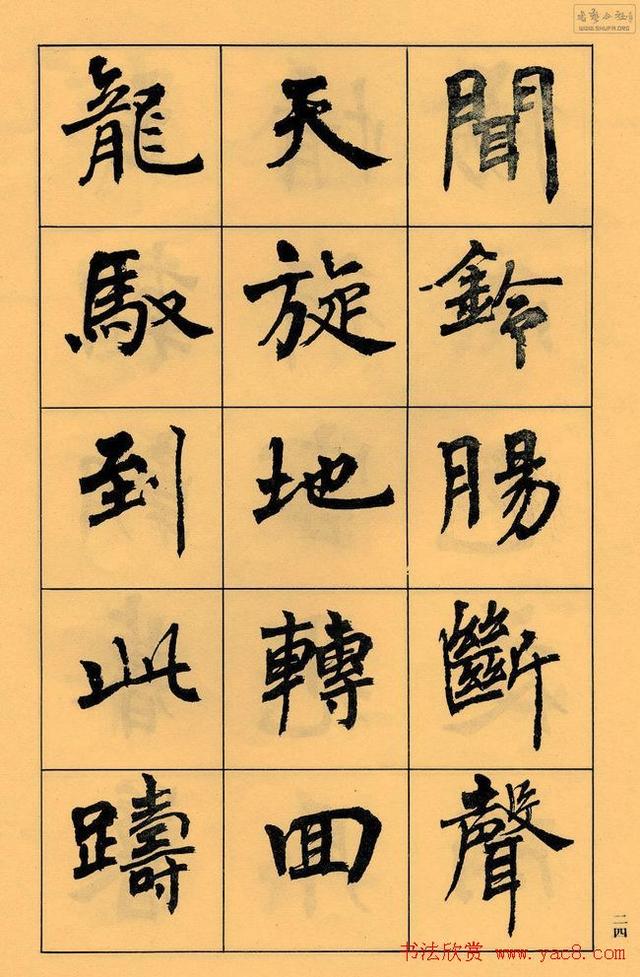 聞鈴腸斷聲
天旋地轉回
龍馭到此躊
二四
书法欣赏 www.yac8.com
WWW.SHUFA.ORG